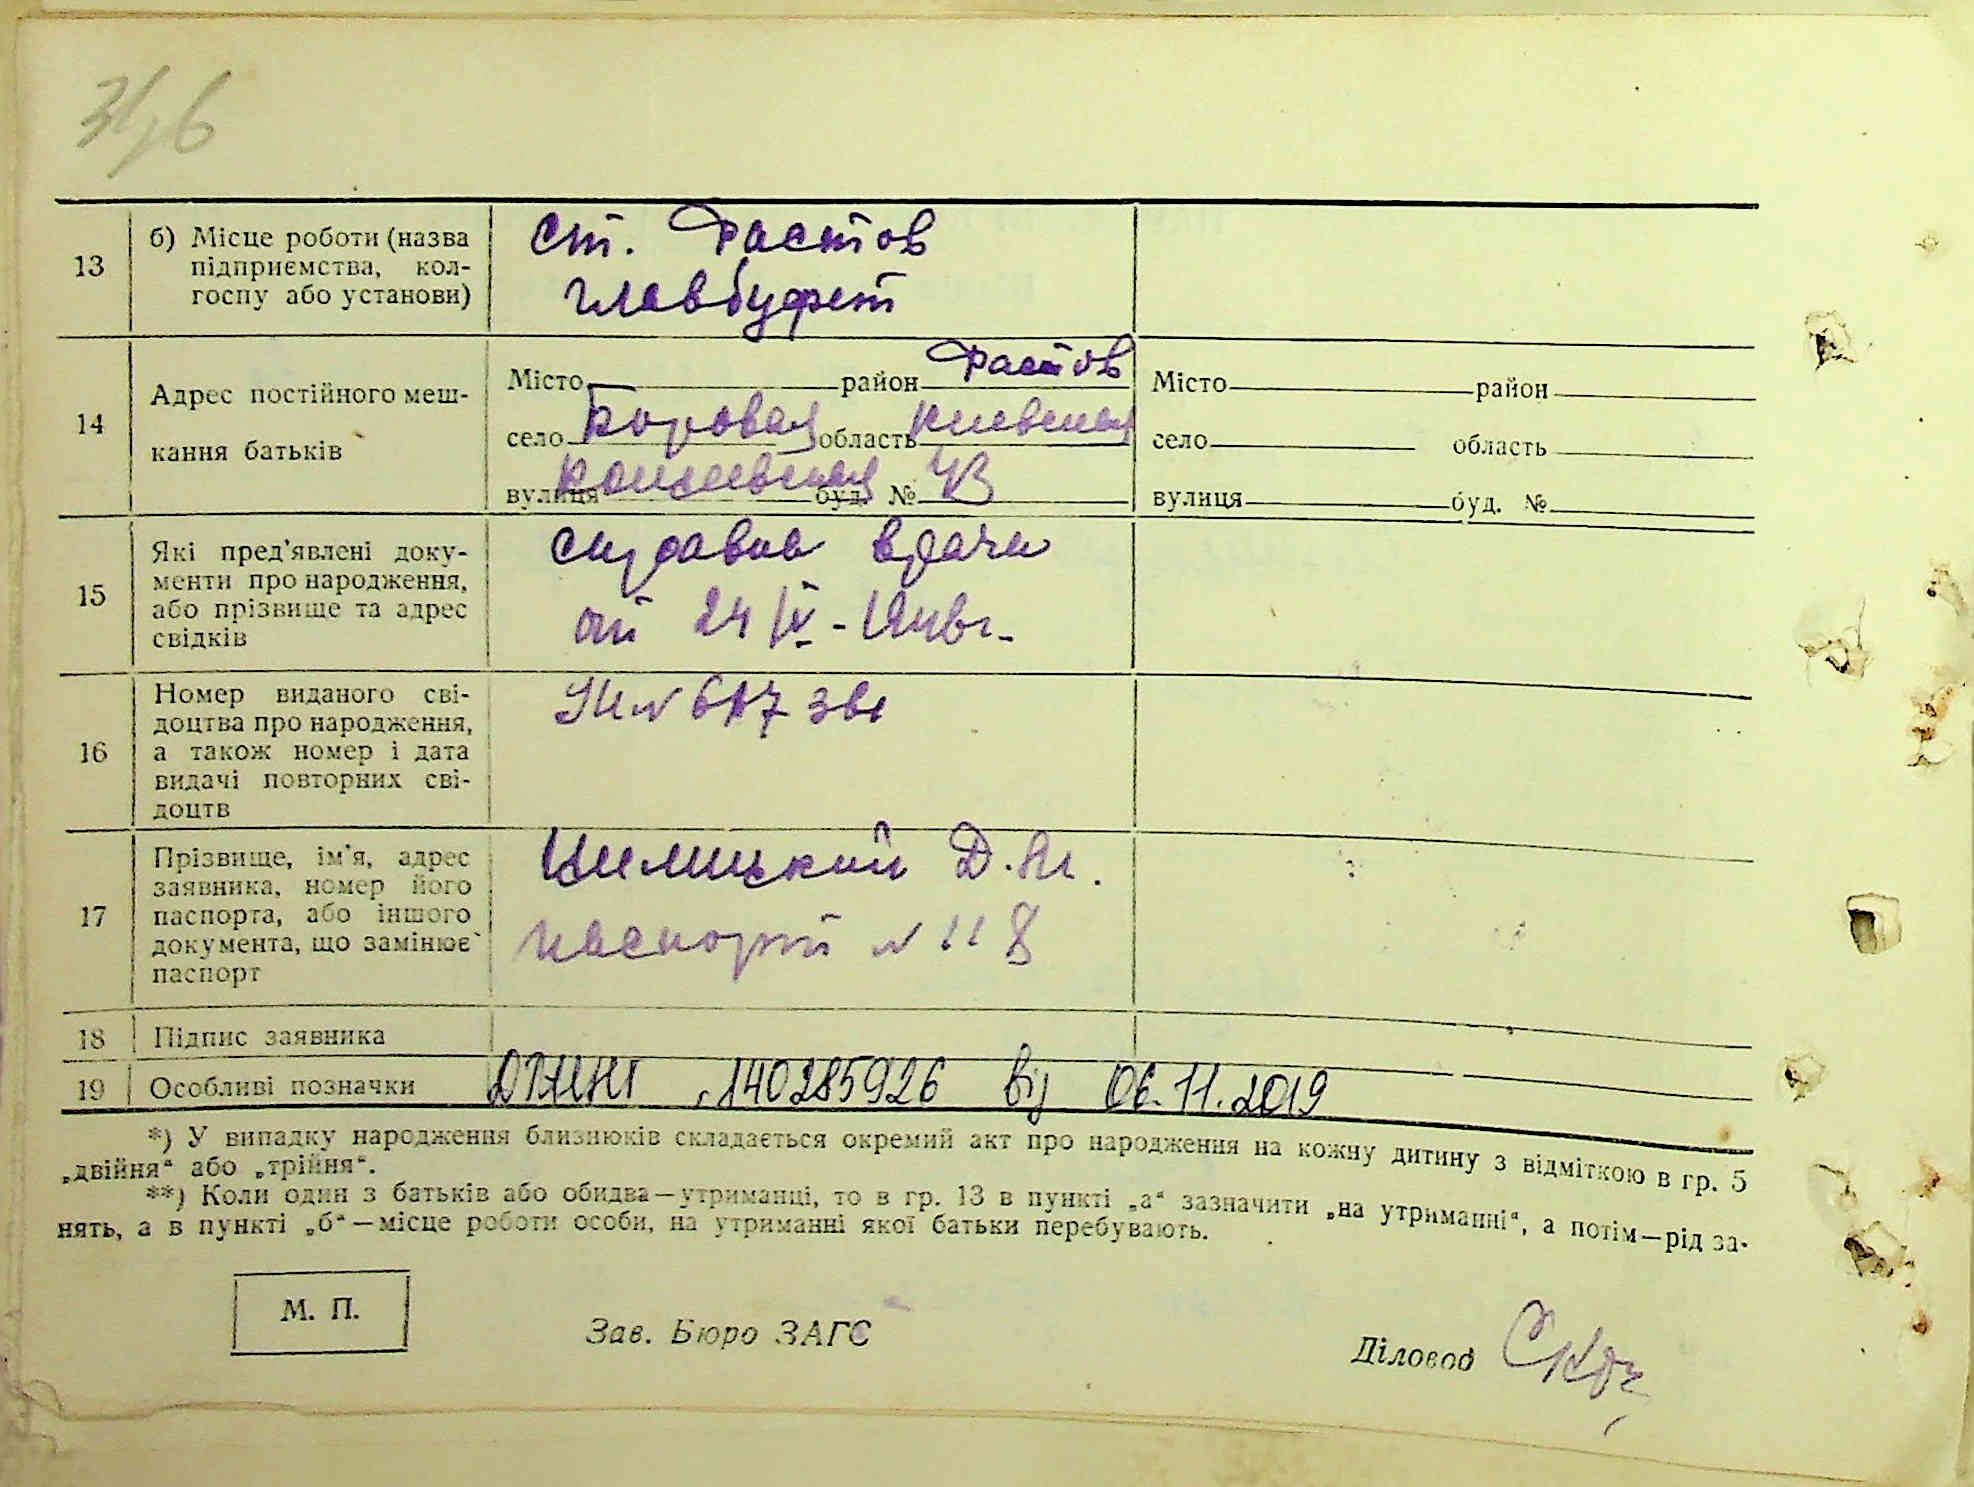 346
13 б) Місце роботи (назва підприємства, кол-
госпу або установи)
ст. Фастов
главбуфет
14 Адрес постійного меш-
кання батьків
Місто район Фастов
село Боровая область Киевская
вулиця буд. №
Місто район
село область
вулиця буд. №
15 Які пред'явлені доку-
менти про народження,
або прізвище та адрес
свідків
справка врача
от 24/IV-
16 Номер виданого сві-
доцтва про народження,
а також номер і дата
видачі повторних сві-
доцтв
17 Прізвище, ім'я, адрес
заявника, номер його
паспорта, або іншого
документа, що замінює
паспорт
паспорт № 118
18 Підпис заявника
19 Особливі позначки
140285926 від 06.11.2019
*) У випадку народження близнюків складається окремий акт про народження на кожну дитину з відміткою в гр. 5
„двійня“ або „трійня“.
**) Коли один з батьків або обидва—утриманці, то в гр. 13 в пункті „а“ зазначити „на утриманні“, а потім—рід за-
нять, а в пункті „б“—місце роботи особи, на утриманні якої батьки перебувають.
М. П.
Зав. Бюро ЗАГС
Діловод